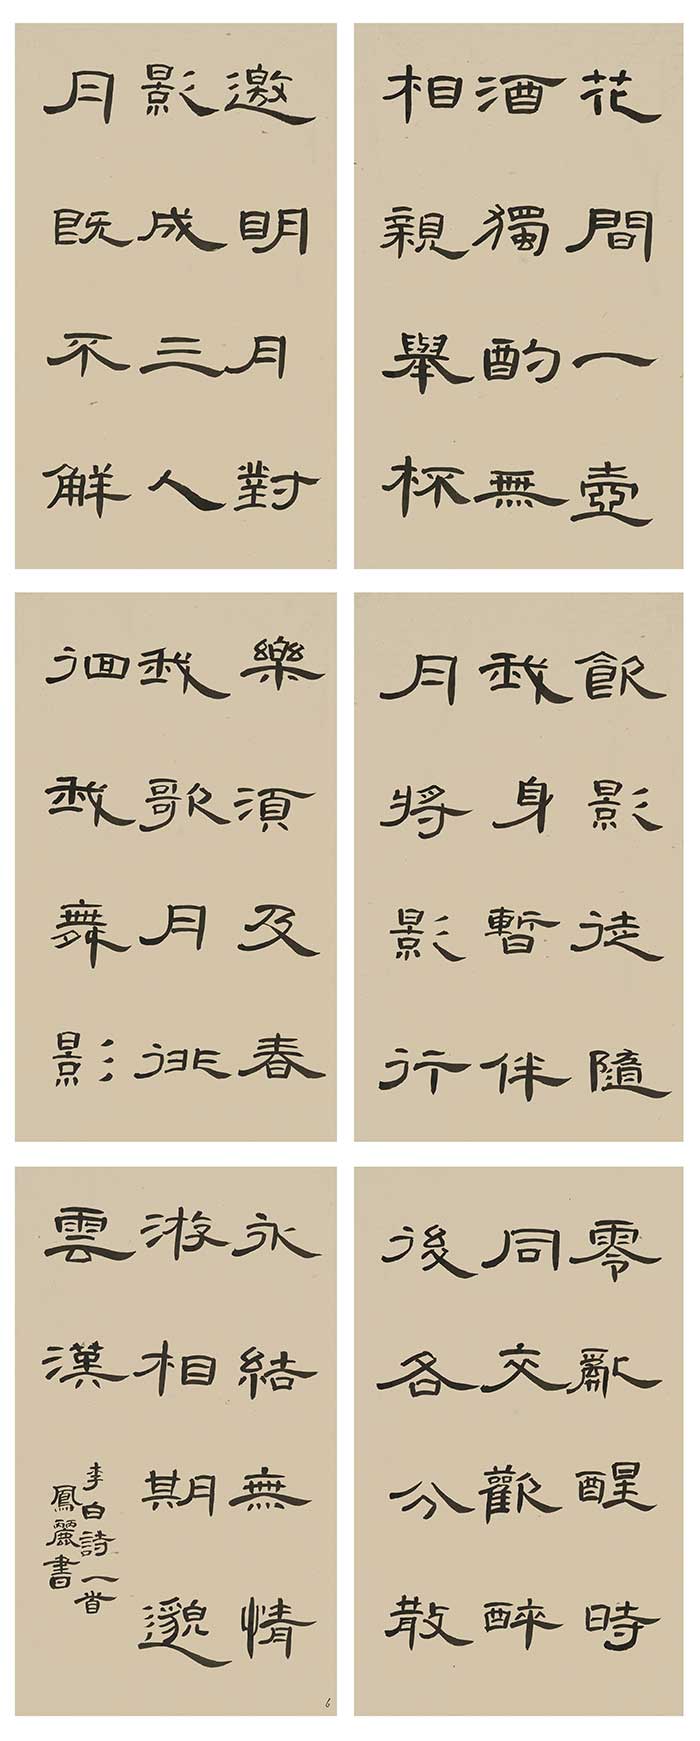 花間一壺
酒獨酌無
相親舉杯
邀明月對
影成三人
月既不解
飲影徒隨
我身暫伴
月將影行
樂須及春
我歌月徘
徊我舞影
零亂醒時
同交歡醉
後各分散
永結無情
游相期邈
雲漢
李白詩一首
鳳麗書
6